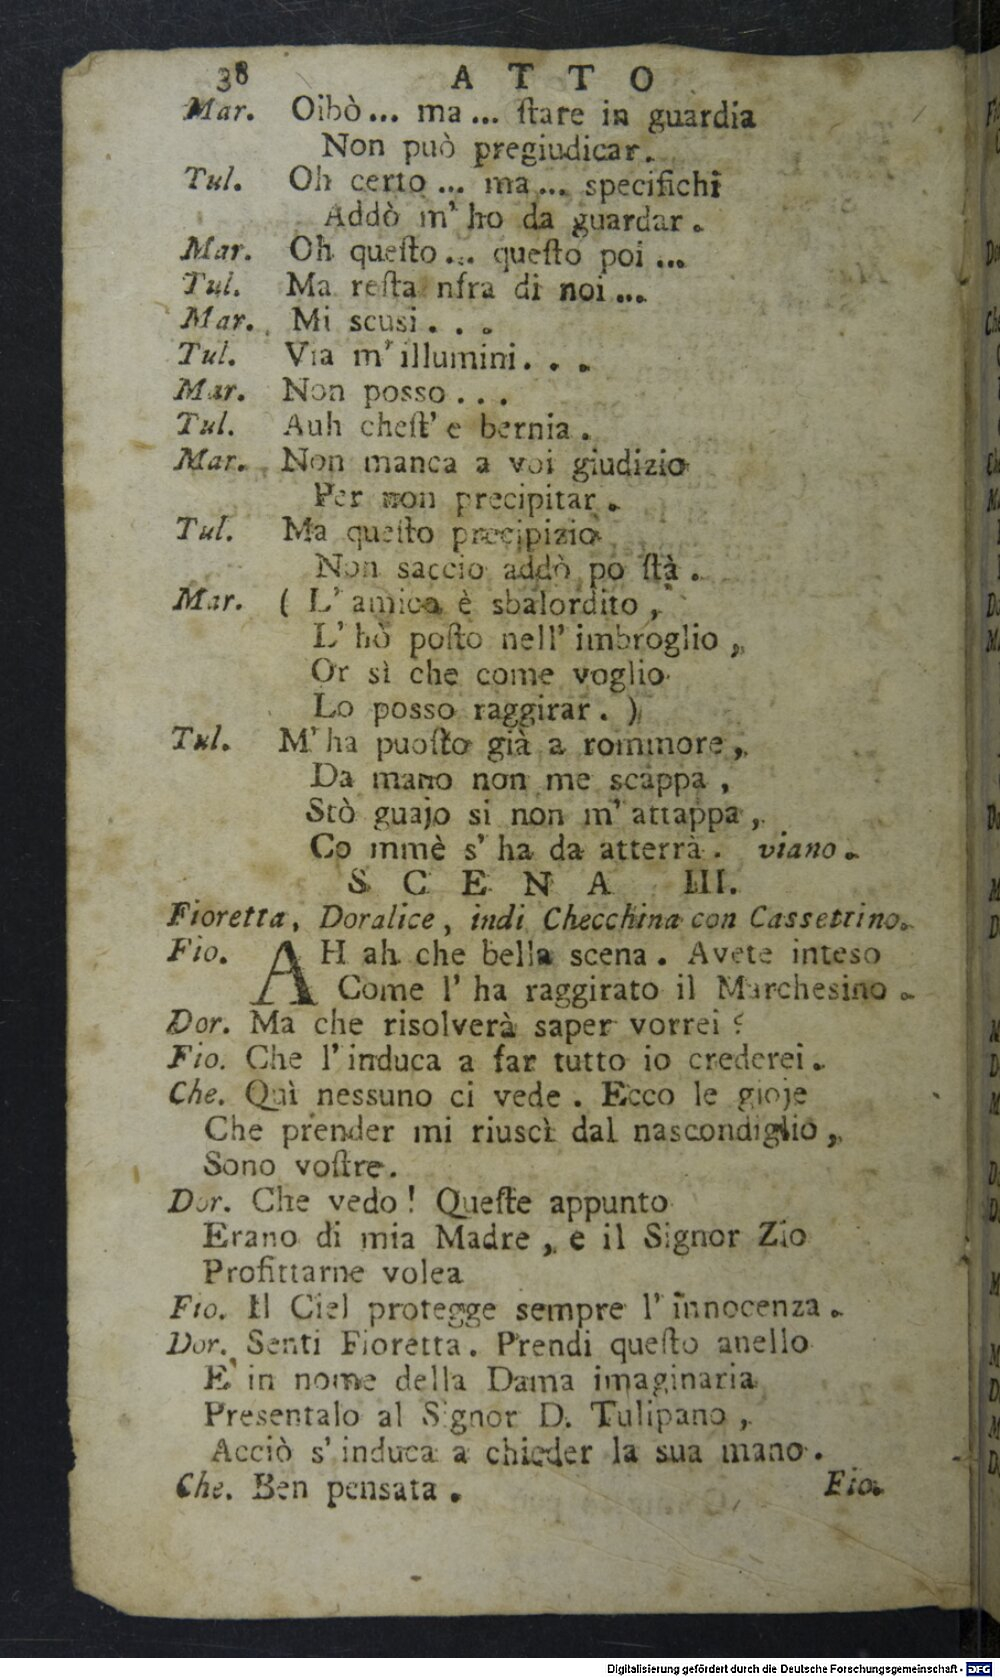 38 ATTO
Mar. Oibò... ma... ſtare in guardia
Non può pregiudicar.
Tul. Oh certo... ma... specifichi
Addò m' ho da guardar.
Mar. Oh queſto... queſto poi...
Tul. Ma reſta nfra di noi...
Mar. Mi scusi...
Tul. Via m' illumini...
Mar. Non posso...
Tul. Auh cheſt' e bernia.
Mar. Non manca a voi giudizio
Per non precipitar.
Tul. Ma queſto precipizio
Non saccio addò po ſtà.
Mar. ( L' amico è sbalordito,
L' hò poſto nell' imbroglio,
Or sì che come voglio
Lo posso raggirar. )
Tul. M' ha puoſto già a rommore,
Da mano non me scappa,
Stò guajo si non m' attappa,
Co mmè s' ha da atterrà. viano.
SCENA III.
Fioretta, Doralice, indi Checchina con Cassettino.
Fio. AH ah che bella scena. Avete inteso
Come l' ha raggirato il Marchesino.
Dor. Ma che risolverà saper vorrei?
Fio. Che l' induca a far tutto io crederei.
Che. Quì nessuno ci vede. Ecco le gioje
Che prender mi riuscì dal nascondiglio,
Sono voſtre.
Dor. Che vedo! Queſte appunto
Erano di mia Madre, e il Signor Zio
Profittarne volea
Fio. Il Ciel protegge sempre l' innocenza.
Dor. Senti Fioretta. Prendi queſto anello
E' in nome della Dama imaginaria
Presentalo al Signor D. Tulipano,
Acciò s' induca a chieder la sua mano.
Che. Ben pensata.
Fio.
Digitalisierung gefördert durch die Deutsche Forschungsgemeinschaft - DFG